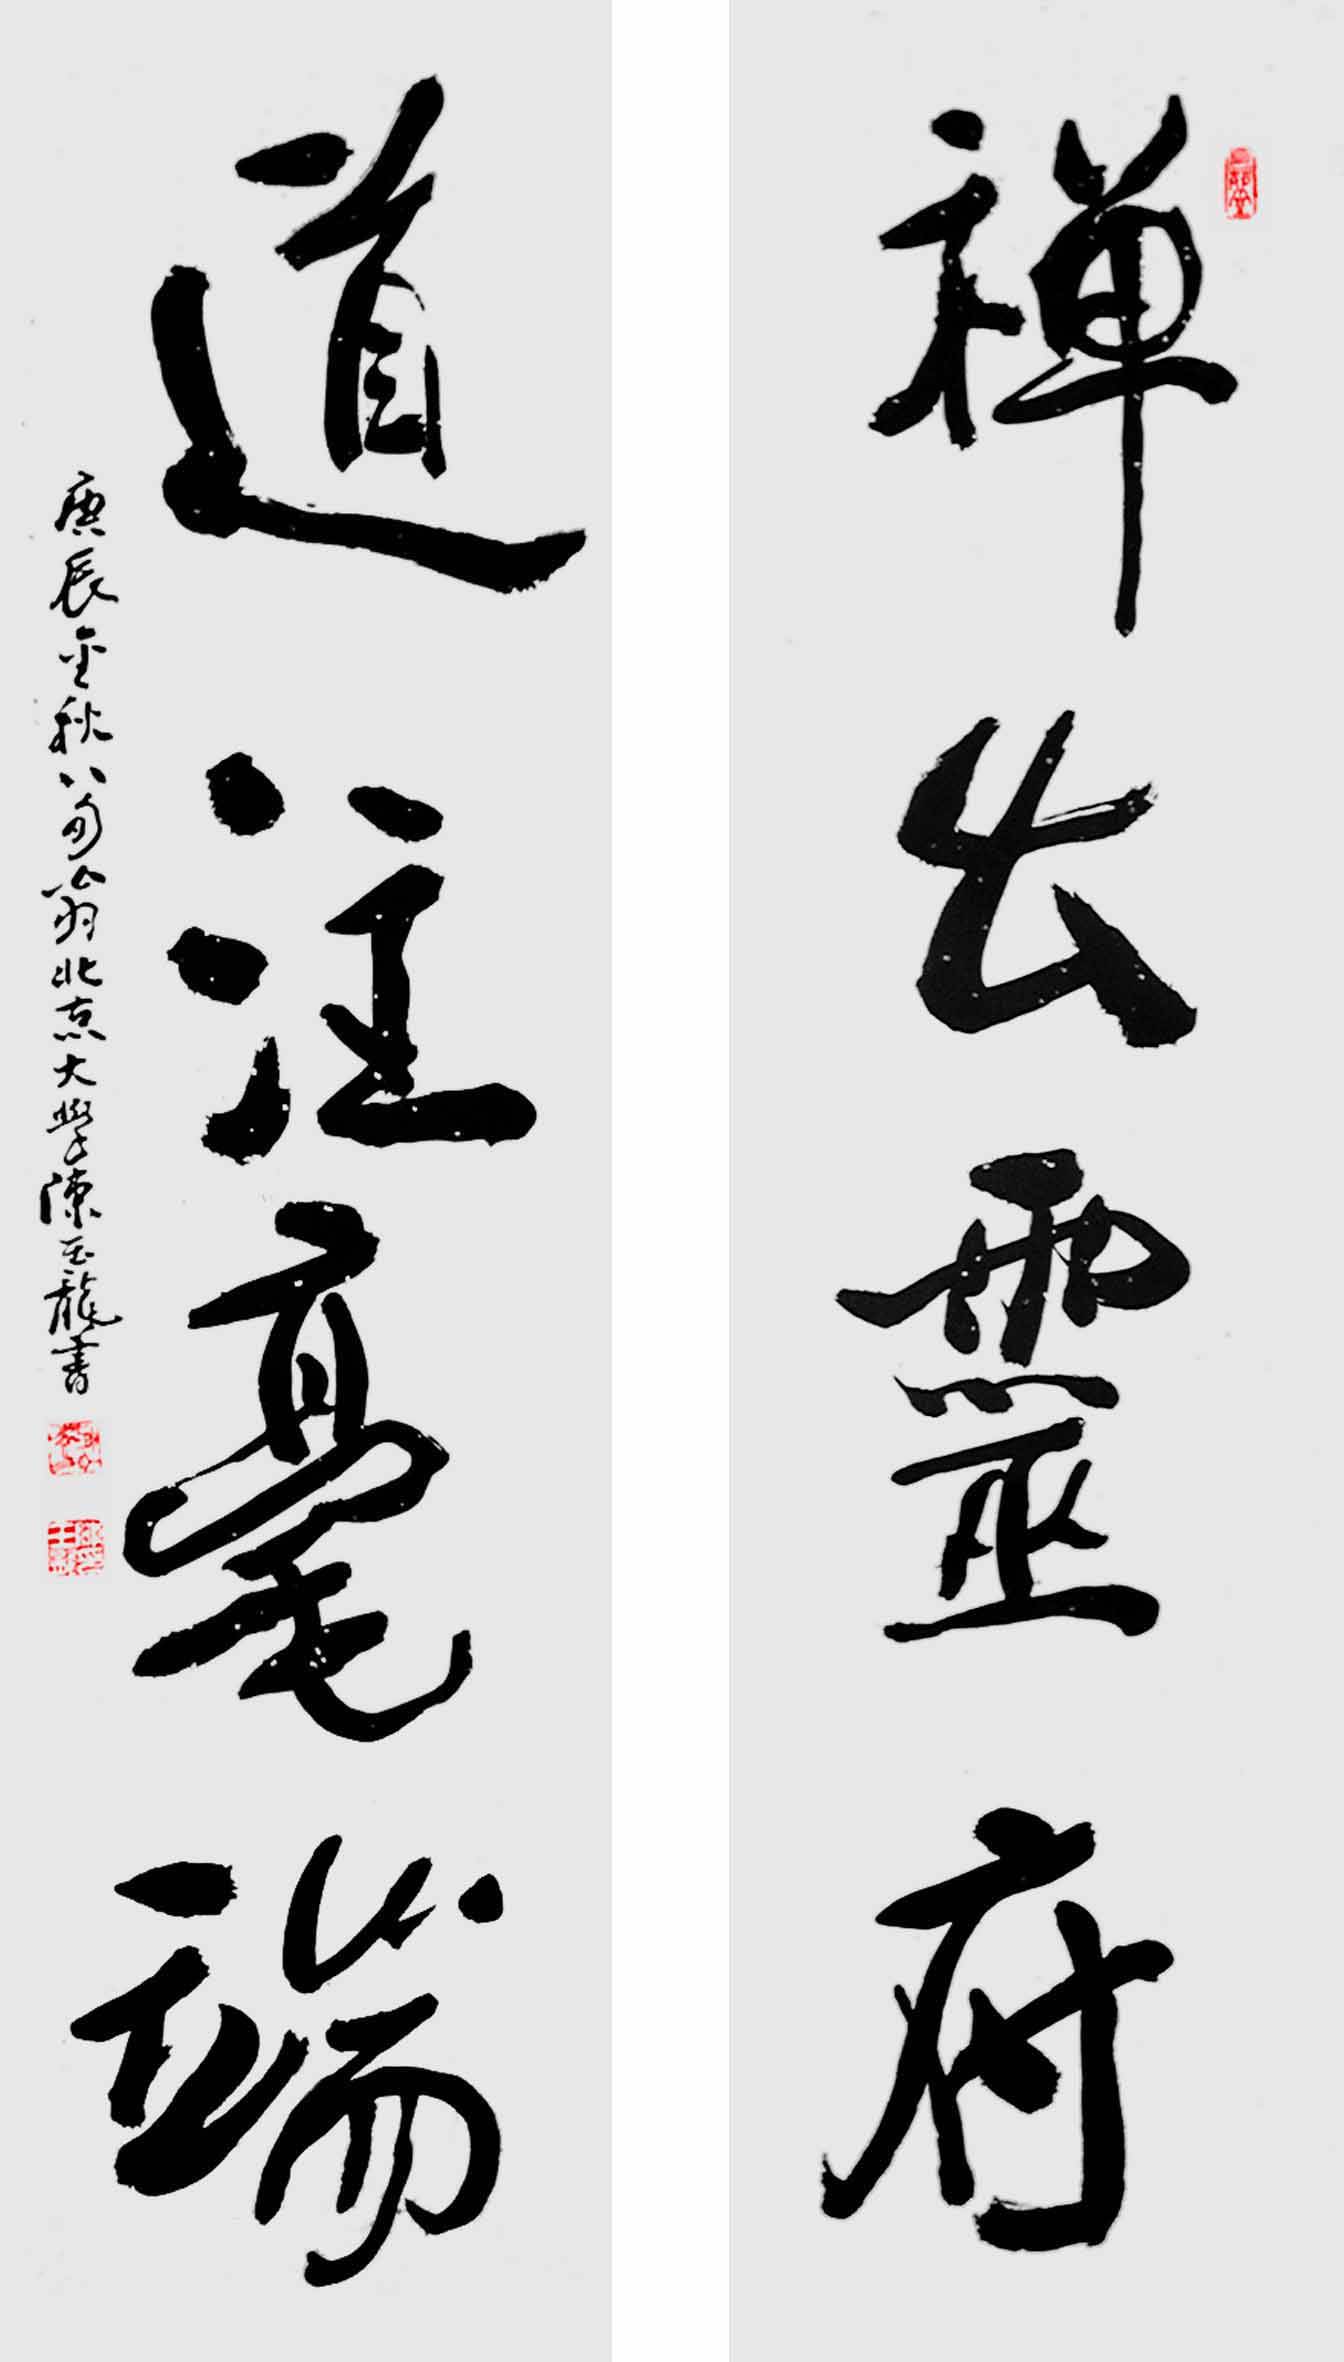 禅出靈府
道注毫端
庚辰金秋八旬翁北京大學陳玉龍書